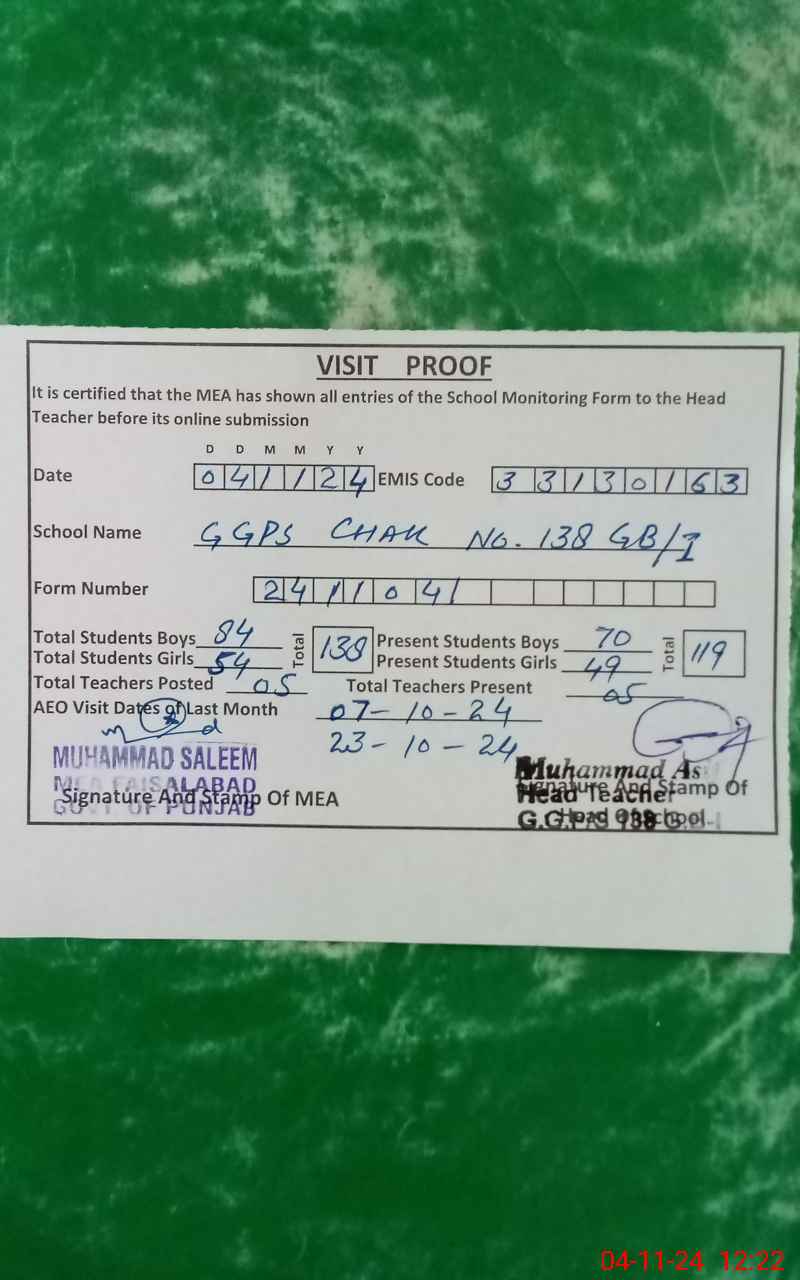 VISIT PROOF
It is certified that the MEA has shown all entries of the School Monitoring Form to the Head
Teacher before its online submission
D D M M Y Y
Date 041124 EMIS Code 33130163
School Name GGPS CHAK No. 138 GB/I
Form Number 2411041
Total Students Boys 84 Total 138 Present Students Boys 70 Total 119
Total Students Girls 54 Present Students Girls 49
Total Teachers Posted 05 Total Teachers Present 05
AEO Visit Dates of Last Month 07-10-24
23-10-24
MUHAMMAD SALEEM
MEA FAISALABAD
GOVT OF PUNJAB
Signature And Stamp Of MEA
Muhammad As
Head Teacher
G.G.P.S 138 G.
Signature And Stamp Of
Head Of School
04-11-24 12:22